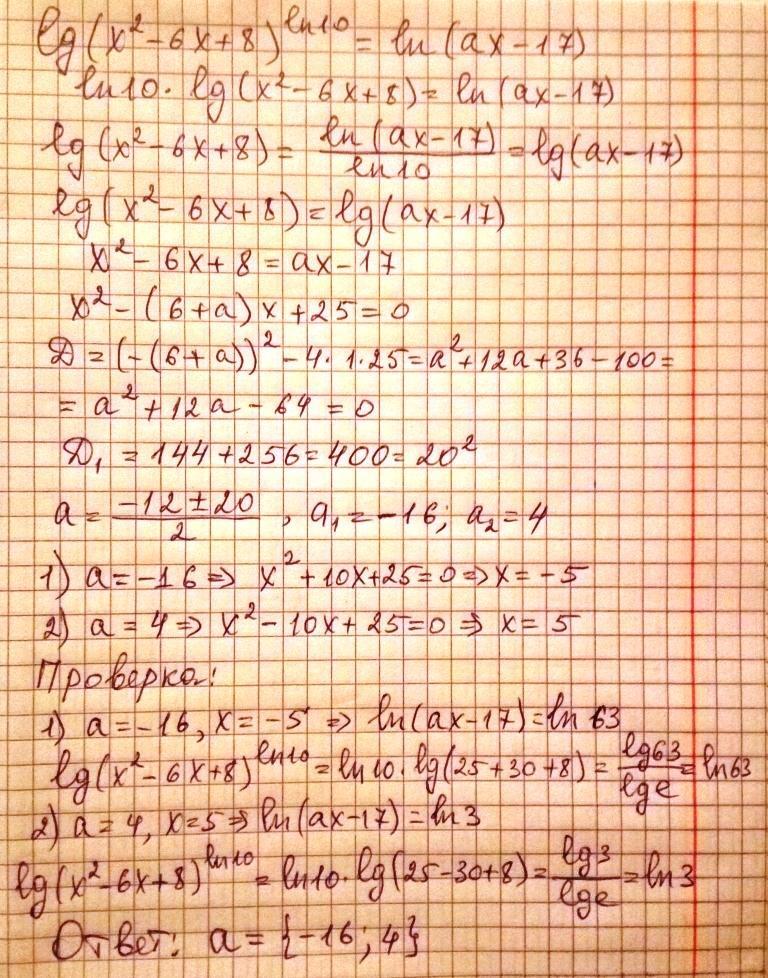 lg(x²-6x+8)^ln10 = ln(ax-17)
ln10· lg(x²-6x+8)= ln(ax-17)
lg(x²-6x+8)= ln(ax-17)/ln10 = lg(ax-17)
lg(x²-6x+8)= lg(ax-17)
x²-6x+8=ax-17
x²-(6+a)x+25=0
D=(-(6+a))²-4·1·25=a²+12a+36-100=
= a²+12a-64=0
D₁ =144+256=400=20²
a= (-12±20)/2 , a₁=-16; a₂=4
1) a=-16⇒ x²+10x+25=0⇒x=-5
2) a=4⇒ x²-10x+25=0 ⇒ x=5
Проверка:
1) a=-16, x=-5 ⇒ ln(ax-17)=ln63
lg(x²-6x+8)^ln10 = ln10·lg(25+30+8)= lg63/lge = ln63
2) a=4, x=5⇒ ln(ax-17)=ln3
lg(x²-6x+8)^ln10 = ln10·lg(25-30+8)= lg3/lge = ln3
Ответ: a={-16; 4}